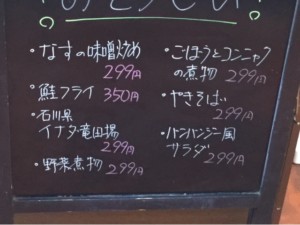 ・なすの味噌炒め
299円
・鮭フライ 350円
・石川県
イナダ竜田揚
299円
・野菜煮物 299円
・ごぼうとコンニャク
の煮物 299円
・やきそば
299円
・バンバンジー風
サラダ 299円